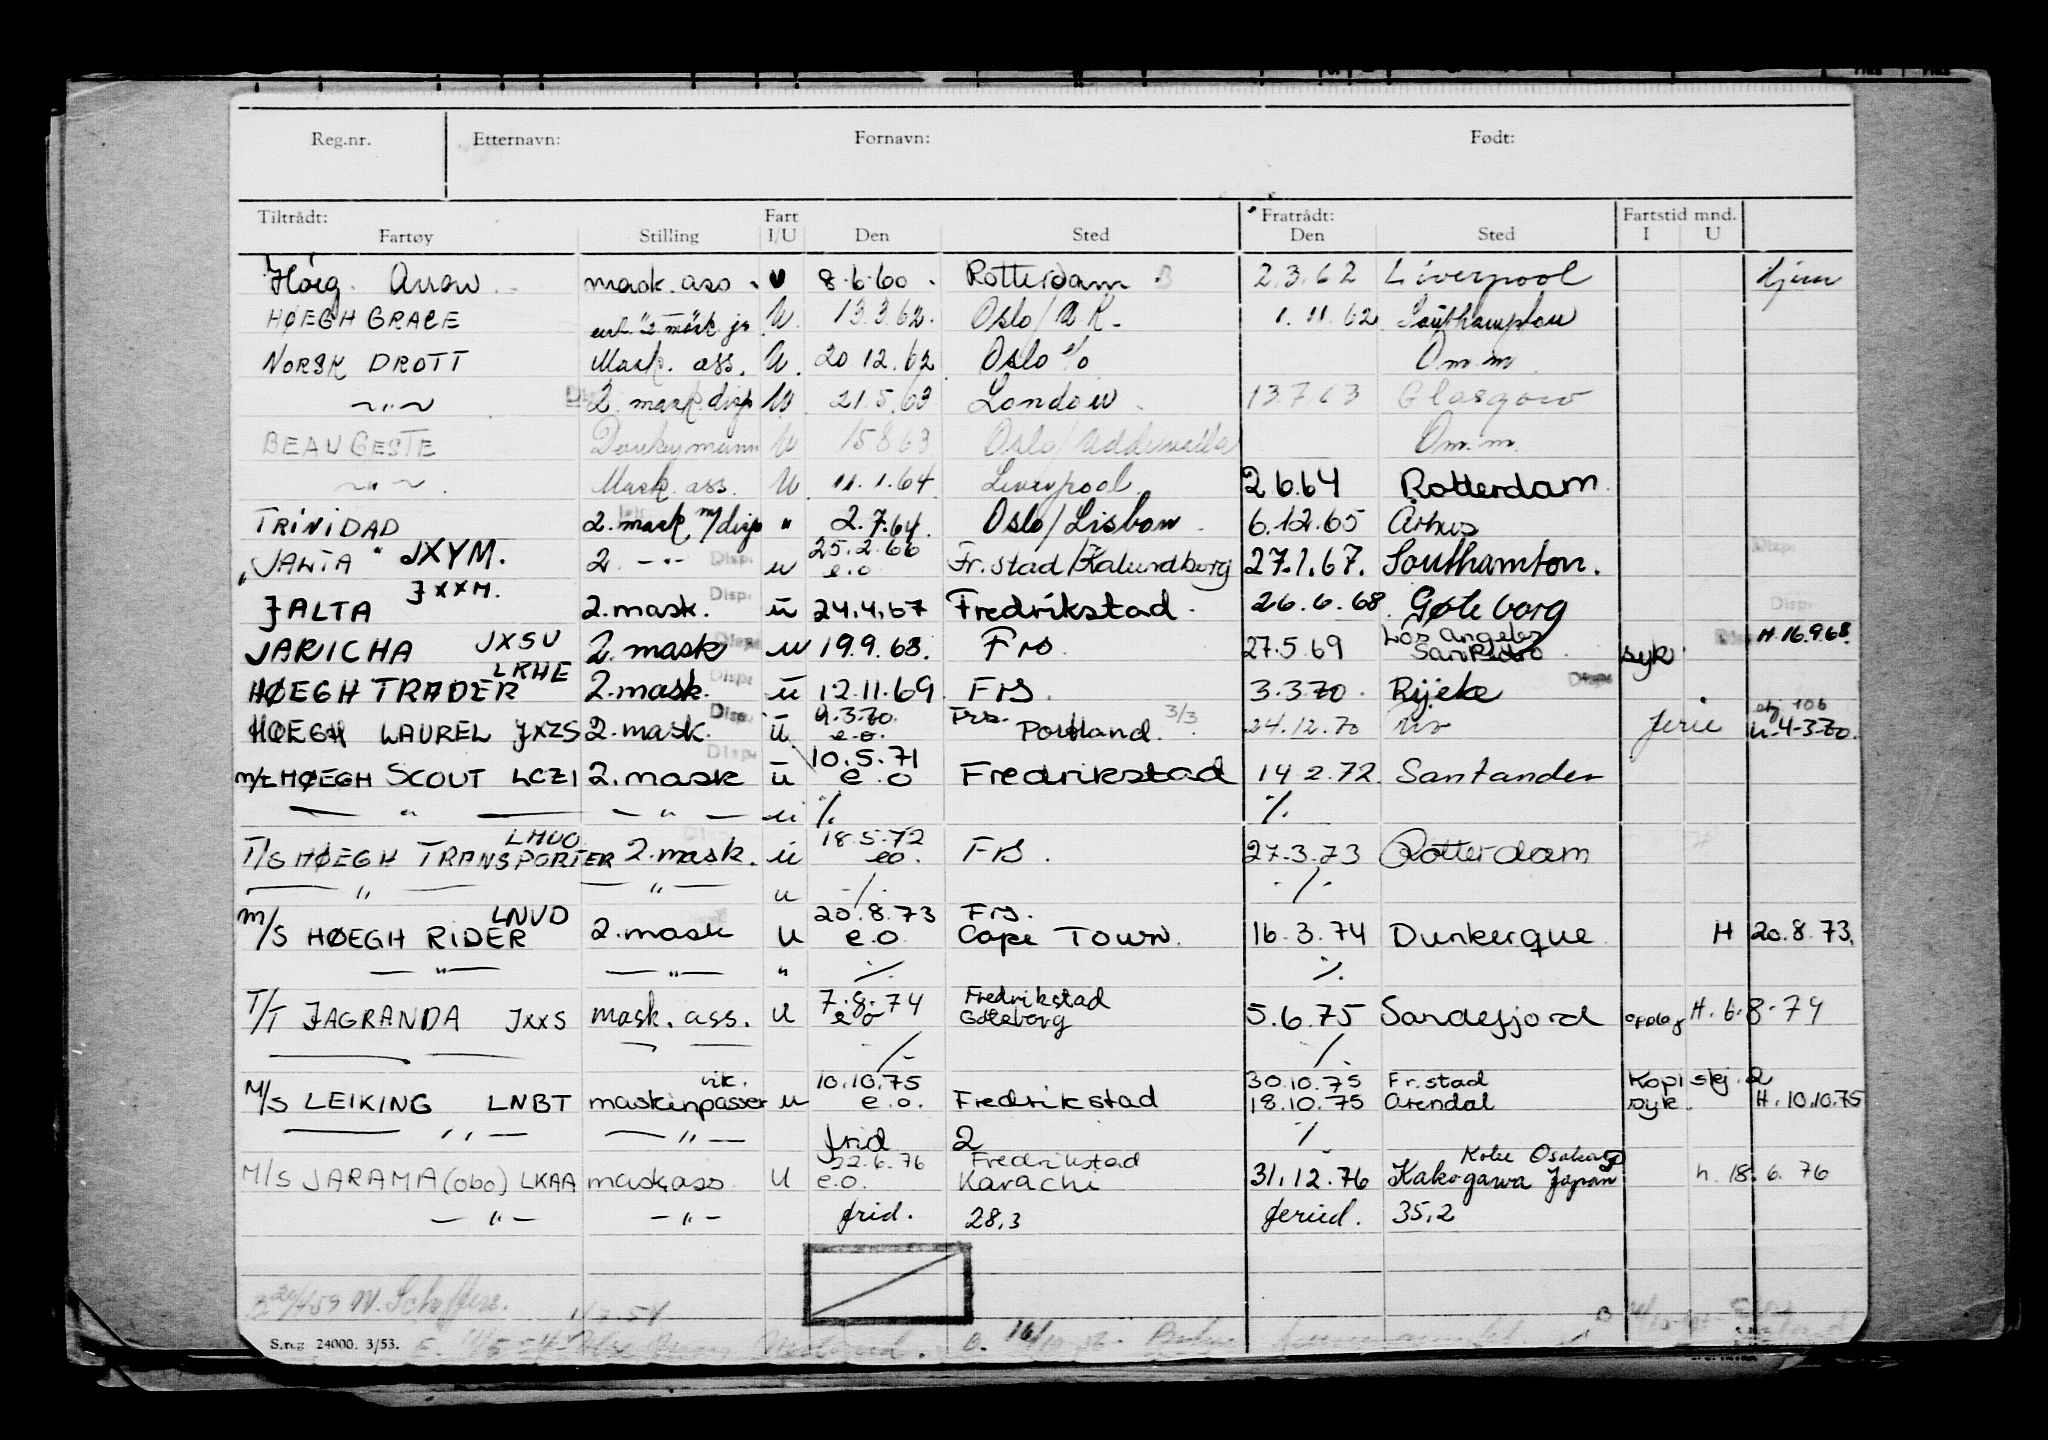 Reg.nr. Etternavn: Fornavn: Født:
Tiltrådt: Fart Fratrådt: Fartstid mnd.
Fartøy Stilling I/U Den Sted Den Sted I U
Høeg. Arrow mask. ass U 8.6.60 Rotterdam 2.3.62 Liverpool hjem
HØEGH GRACE 2 mask jr U. 13.3.62. Oslo/UK. 1.11.62 Southampton
NORSK DROTT Mask. ass. U. 20 12.62 Oslo e/o Om.m
—"— 2 mask disp U 21.5.63 London 13.7.63 Glasgow
BEAU GESTE Donkeymann U 15863 Oslo/Uddevalla Om.m.
—"— Mask. ass. U 11.1.64 Liverpool 2 6.64 Rotterdam
TRINIDAD 2. mask m/disp " 2.7.64. Oslo/Lisbon 6.12.65 Århus
"JALTA" JXYM. 2. —"— Disp. u 25.2.66 e.o Fr.stad/Kalundborg 27.1.67. Southamton.
JALTA JXXM. 2. mask. Disp. u 24.4.67 Fredrikstad. 26.6.68 Gøteborg
JARICHA JXSU 2. mask u 19.9.68. Frs. 27.5.69 Los Angeles San Pedro syk H.16.9.68.
HØEGH TRADER LKHE 2. mask. u 12.11.69 Frs. 3.3.70. Rijeke
HØEGH LAUREL JXZS 2. mask. Disp. u 9.3.70. e.o. Frs. Portland. 3/3 24.12.70 ferie 4-3-70.
m/t HØEGH SCOUT LCZI 2. mask u 10.5.71 e.o Fredrikstad 14 2.72. Santander
— " — — " — u ./. ./.
T/S HØEGH TRANSPORTER LMUO 2. mask. u 18.5.72 eo. Frs. 27.3.73 Rotterdam
— " — — " — u ./. ./.
M/S HØEGH RIDER LNVD 2. mask u 20.8.73 e.o. Frs. Cape Town. 16.3.74 Dunkerque H 20.8.73.
— " — — " — " ./. ./.
T/T JAGRANDA JXXS mask. ass. u 7.8.74 e o Fredrikstad Gøteborg 5.6.75 Sandefjord H. 6.8.74
./. ./.
M/S LEIKING LNBT vik. maskinpasser u 10.10.75 e.o. Fredrikstad 30.10.75 Fr.stad 18.10.75 Arendal Kopi skj. 2 syk. H. 10.10.75
— " — — " — frid 2 ./.
M/S JARAMA (obo) LKAA mask.ass U 22.6.76 e.o. Fredrikstad Karachi 31.12.76 Kobe Kakogawa Japan h. 18.6.76
— " — — " — frid. 28,3 feried. 35,2
S.reg 24000. 3/53.